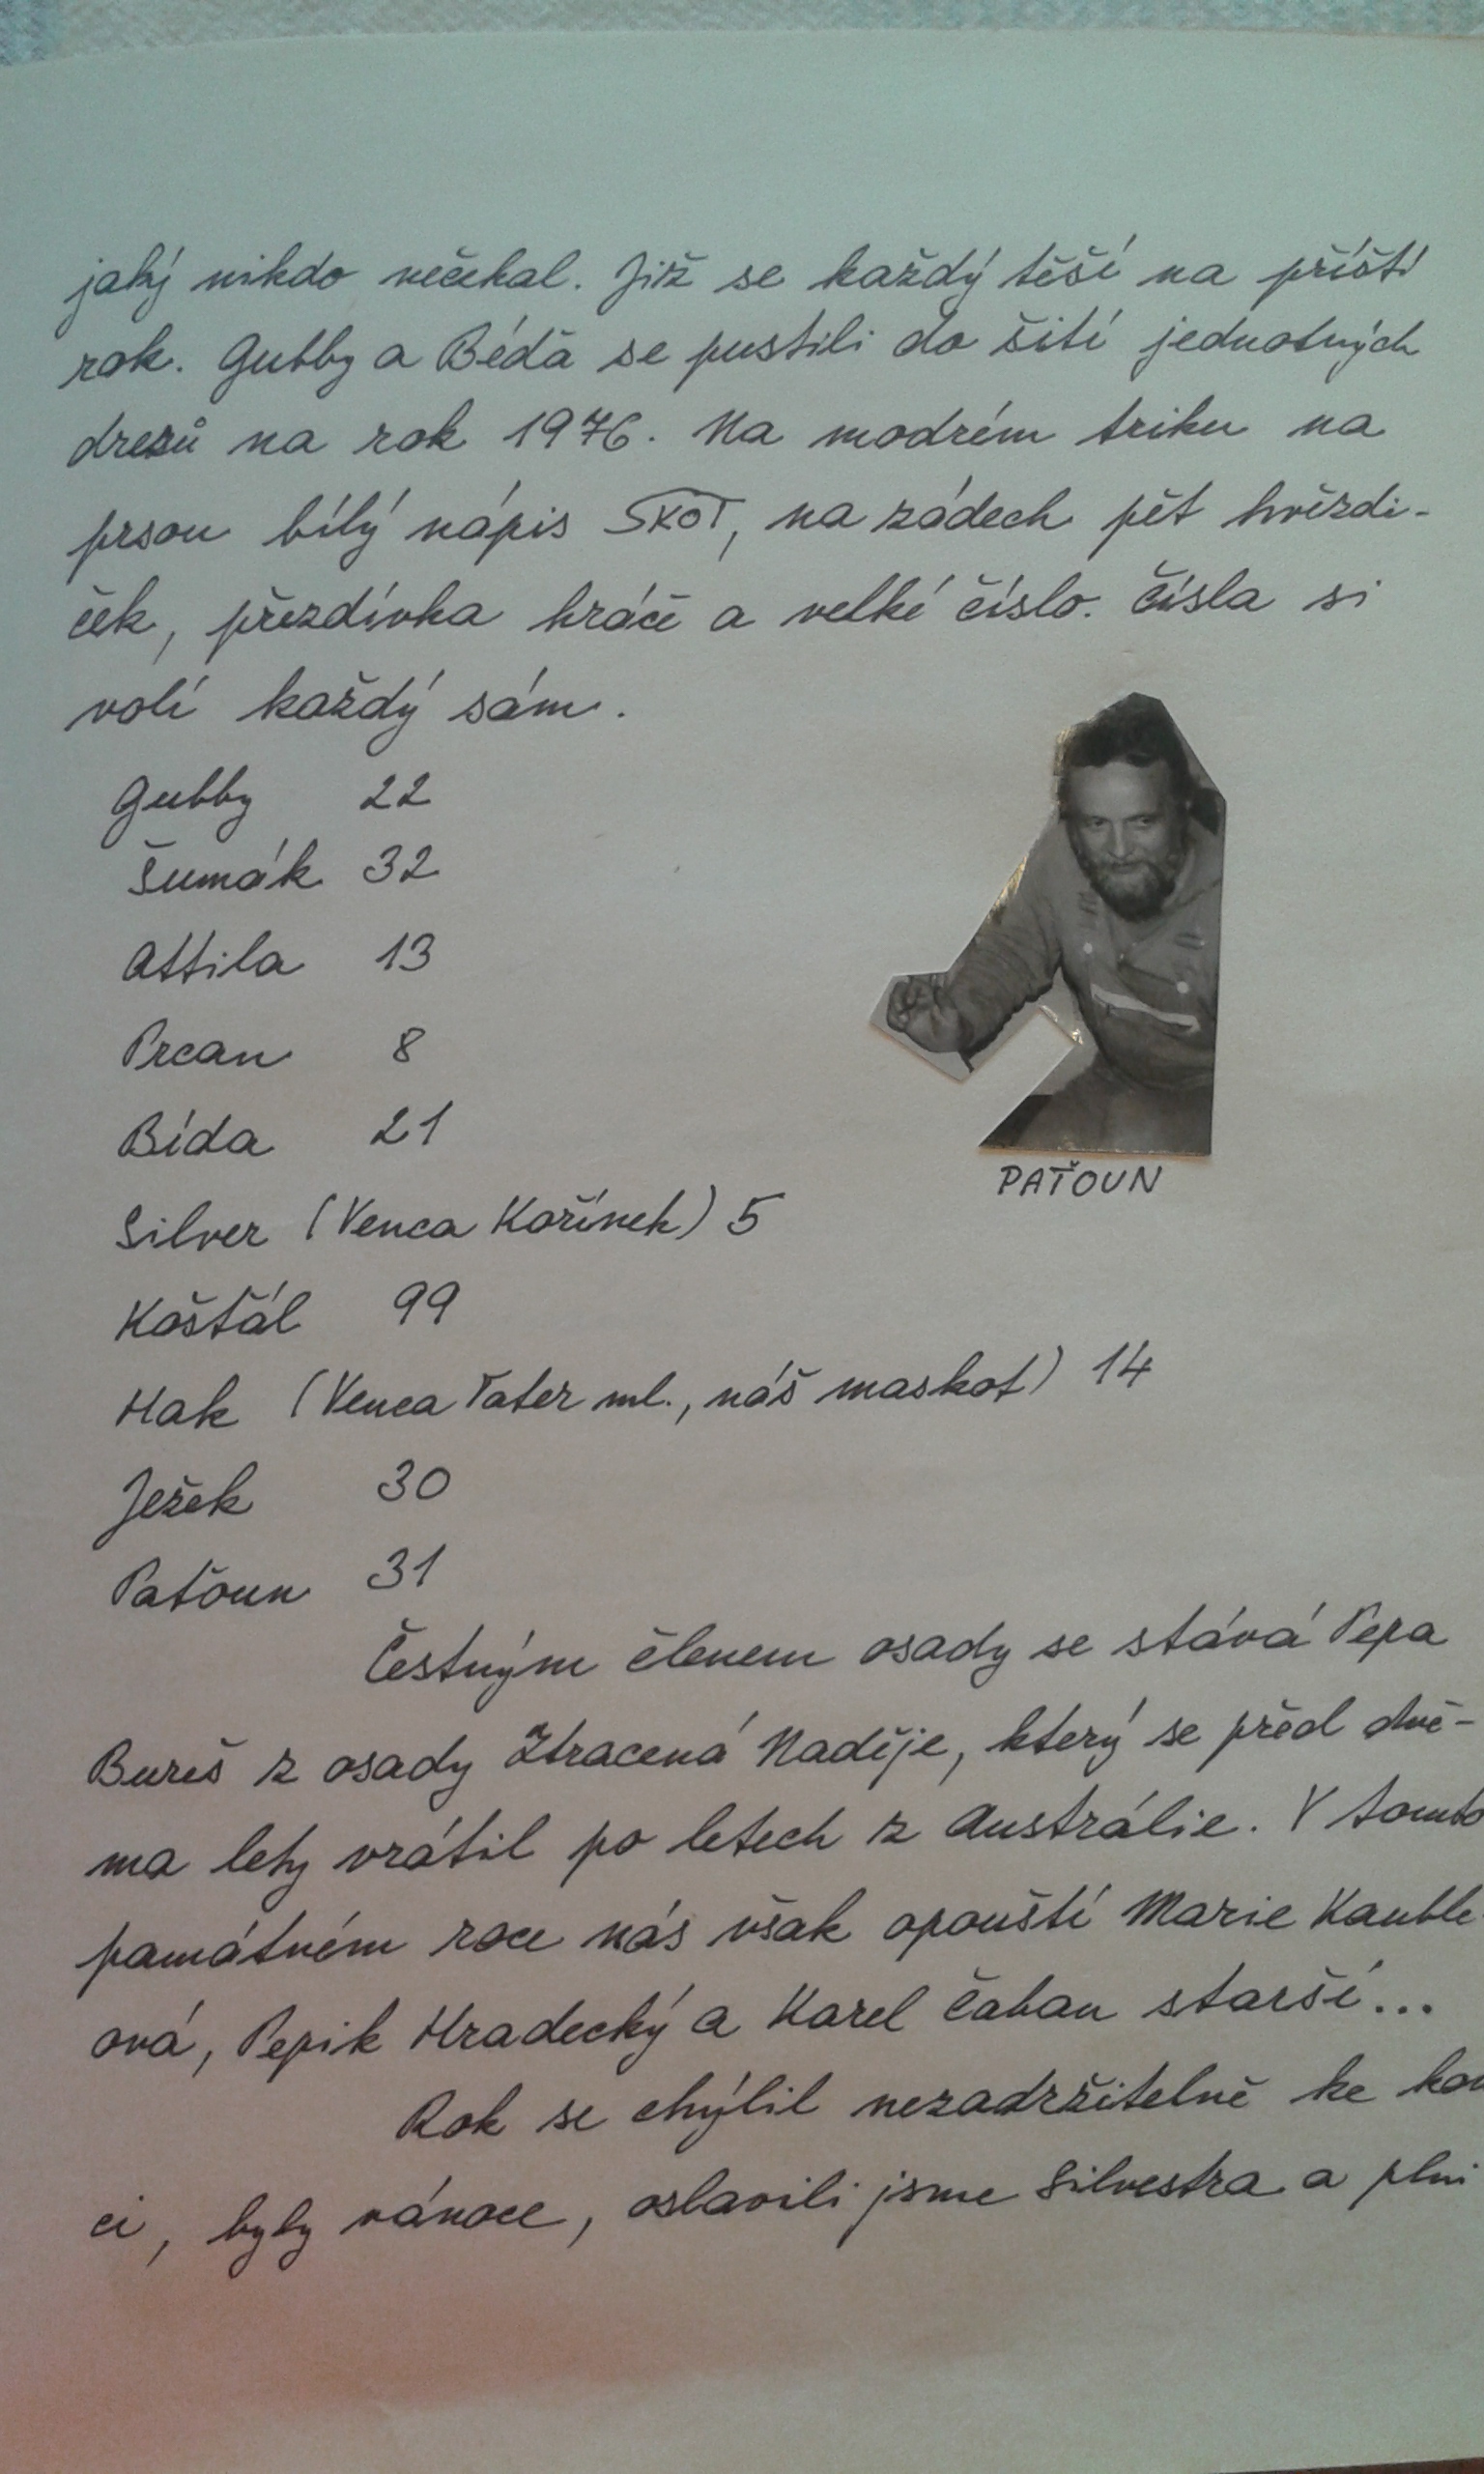 jaký nikdo nečekal. Již se každý těší na příští
rok. Gubby a Béďa se pustili do šití jednotných
dresů na rok 1976. Na modrém triku na
prsou bílý nápis SKOT, na zádech pět hvězdi-
ček, přezdívka hráče a velké číslo. Čísla si
volí každý sám.
Gubby 22
Šumák 32
Attila 13
Prcan 8
Bída 21
PAŤOUN
Silver (Venca Kořínek) 5
Košťál 99
Hak (Venca Tater ml., náš maskot) 14
Ježek 30
Paťoun 31
Čestným členem osady se stává Pepa
Bureš z osady Ztracená Naděje, který se před dvě-
ma lety vrátil po letech z Austrálie. V tomto
památném roce nás však opouští Marie Kauble-
ová, Pepik Hradecký a Karel Čaban starší...
Rok se chýlil nezadržitelně ke kon
ci, byly vánoce, oslavili jsme Silvestra a plni